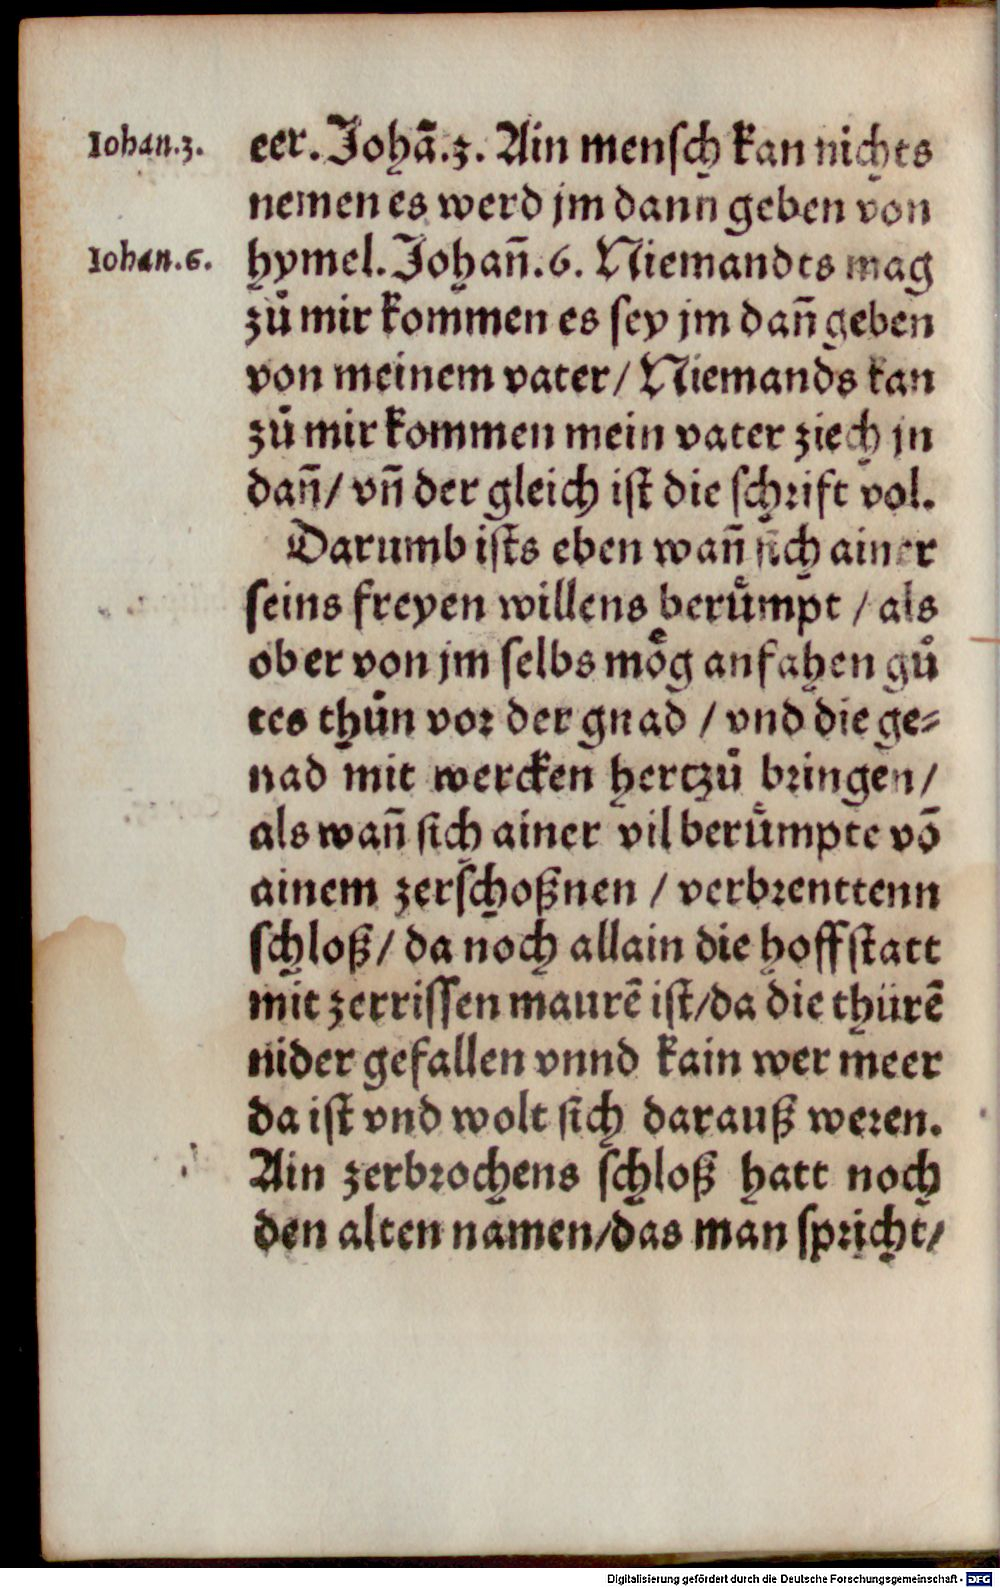 Iohan.3.
eer. Johã.3. Ain mensch kan nichts
nemen es werd jm dann geben von
Iohan.6.
hymel. Johañ.6. Niemandts mag
zů mir kommen es sey jm dañ geben
von meinem vater/ Niemands kan
zů mir kommen mein vater ziech jn
dañ/ vñ der gleich ist die schrift vol.
Darumb ists eben wañ sich ainer
seins freyen willens berůmpt / als
ob er von jm selbs mög anfahen gů
tes thůn vor der gnad / vnd die ge⸗
nad mit wercken hertzů bringen/
als wañ sich ainer vil berůmpte võ
ainem zerschoßnen / verbrenttenn
schloß/ da noch allain die hoffstatt
mit zerrissen maurẽ ist/da die thürẽ
nider gefallen vnnd kain wer meer
da ist vnd wolt sich darauß weren.
Ain zerbrochens schloß hatt noch
den alten namen/das man spricht/
Digitalisierung gefördert durch die Deutsche Forschungsgemeinschaft - DFG